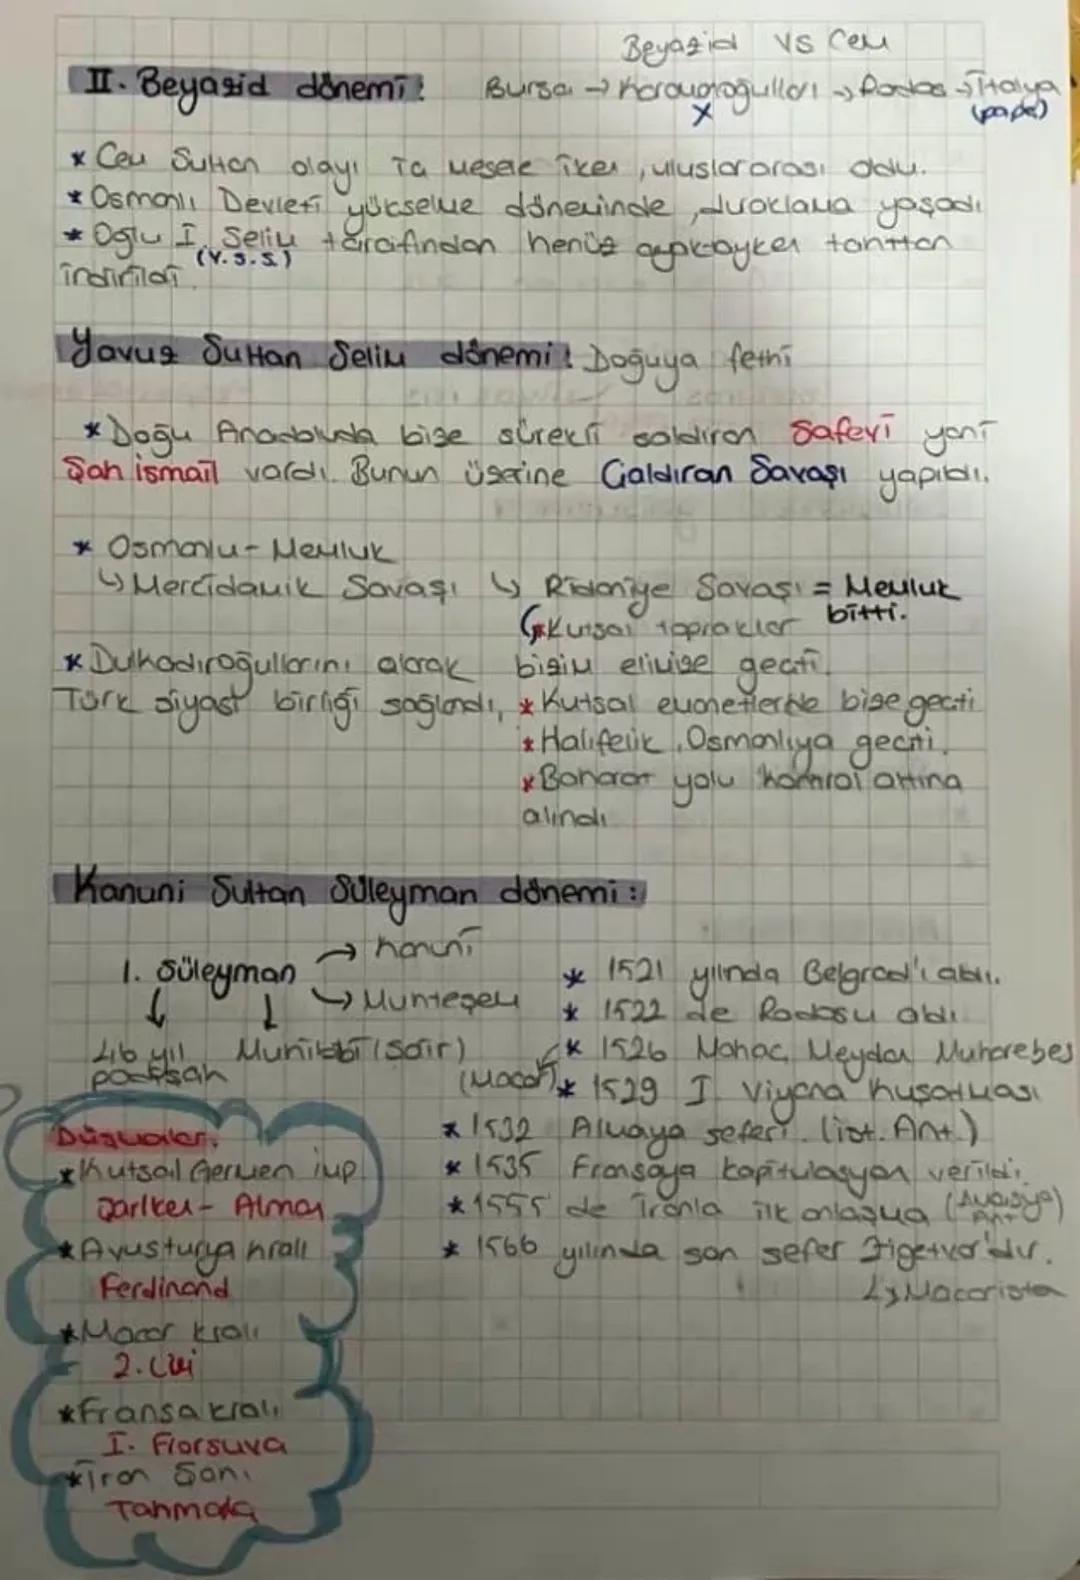 Beyazid vs Cem
II. Beyazid dönemi:
Bursa → Karamanoğulları → Rodos → İtalya
x
(papa)
* Cem Sultan olayı iç mesele iken, uluslararası oldu.
* Osmanlı Devleti yükselme döneminde, duraklama yaşadı
* Oğlu I. Selim tarafından henüz ayaktayken tahttan
(Y.S.S)
indirildi.
Yavuz Sultan Selim dönemi: Doğuya fethi
* Doğu Anadoluda bize sürekli saldıran Safevi yani
Şah ismail vardı. Bunun üzerine Çaldıran Savaşı yapıldı.
* Osmanlu - Memluk
↳ Mercidamik Savaşı ↳ Ridaniye Savaşı = Memluk
bitti.
* Kutsal topraklar
bizim elimize geçti.
* Dulkadiroğullarını alarak
Türk siyasi birliği sağlandı,
* Kutsal emanetlerde bize geçti
* Halifelik, Osmanlıya geçti.
* Baharat yolu kontrol altına
alındı
Kanuni Sultan Süleyman dönemi:
1. Süleyman
→ Kanuni
↳ Muhteşem
46 yıl
padişah
Muhibbi (şair)
* 1521 yılında Belgrad'ı aldı.
* 1522 de Rodosu aldı
* 1526 Mohaç Meydan Muharebes
(Macar)
* 1529 I. Viyana Kuşatması
* 1532 Almaya seferi. (ist. Ant.)
* 1535 Fransaya kapitülasyon verildi.
* 1555 de İranla ilk anlaşma (Amasya Ant)
* 1566 yılında son sefer Zigetvar'dır.
↳ Macarista
Düşmanları:
* Kutsal Germen imp.
Şarlken - Alman
* Avusturya kralı
Ferdinand
* Macar kralı
2. Lui
* Fransa kralı
I. Fransuva
* İran Şahı
Tahmasb